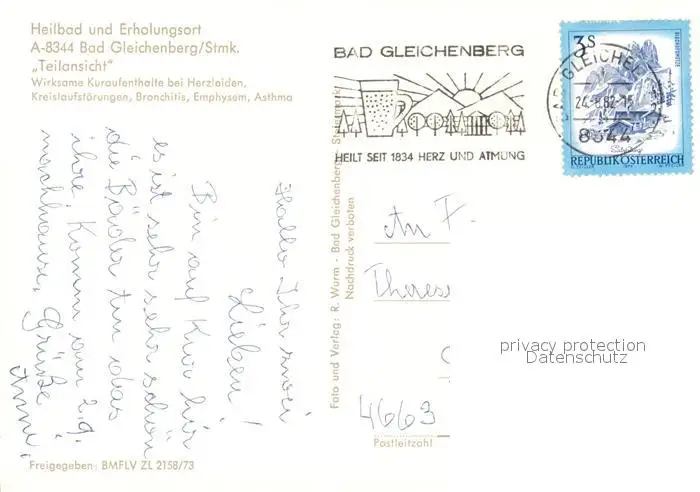 Heilbad und Erholungsort
A-8344 Bad Gleichenberg/Stmk.
„Teilansicht"
Wirksame Kuraufenthalte bei Herzleiden,
Kreislaufstörungen, Bronchitis, Emphysem, Asthma
Hallo Ihr zwei
Lieben!
Bin auf Kur hir
es ist sehr sehr schön
die Bäder tun das
ihre. Komm am 2.9.
nachhause, Grüße
Anni.
Freigegeben: BMFLV ZL 2158/73
Foto und Verlag: R. Wurm - Bad Gleichenberg - Steiermark
Nachdruck verboten
BAD GLEICHENBERG
HEILT SEIT 1834 HERZ UND ATMUNG
BAD GLEICHEN
24.-8.82-15
8344
3S
REPUBLIK ÖSTERREICH
An F.
Theres
4663
Postleitzahl
privacy protection
Datenschutz